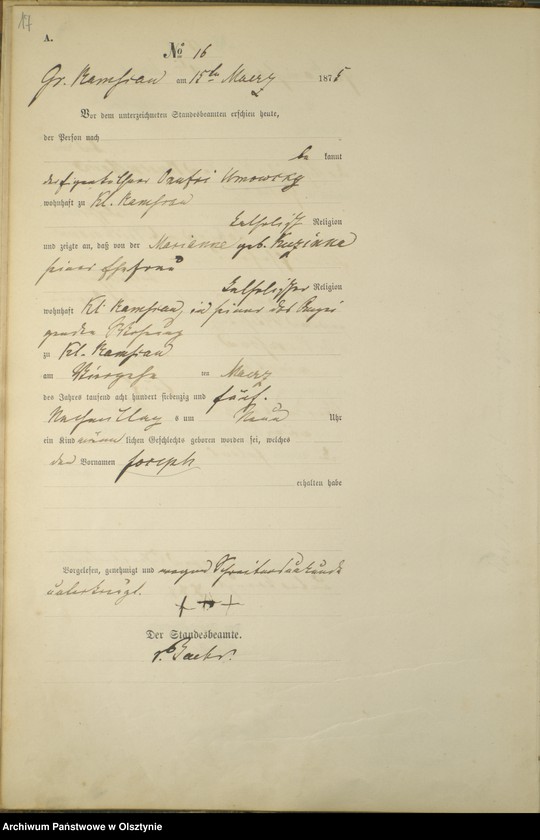 17
A.
No 16
Gr. Ramsau am 15ten Maerz 1875
Vor dem unterzeichneten Standesbeamten erschien heute,
der Person nach
be kannt
der Umowsky
wohnhaft zu Kl. Ramsau
katholischer Religion
und zeigte an, daß von der Marianne geb. Kuzinna
seiner Ehefrau
katholischer Religion
wohnhaft Kl. Ramsau, in seiner
Wohnung
zu Kl. Ramsau
am ten Maerz
des Jahres tausend acht hundert siebenzig und fünf.
Nachmittag s um Neun Uhr
ein Kind männlichen Geschlechts geboren worden sei, welches
den Vornamen Joseph
erhalten habe
Vorgelesen, genehmigt und wegen Schreibensunkunde
unterkreuzt.
+ + +
Der Standesbeamte.
Archiwum Państwowe w Olsztynie